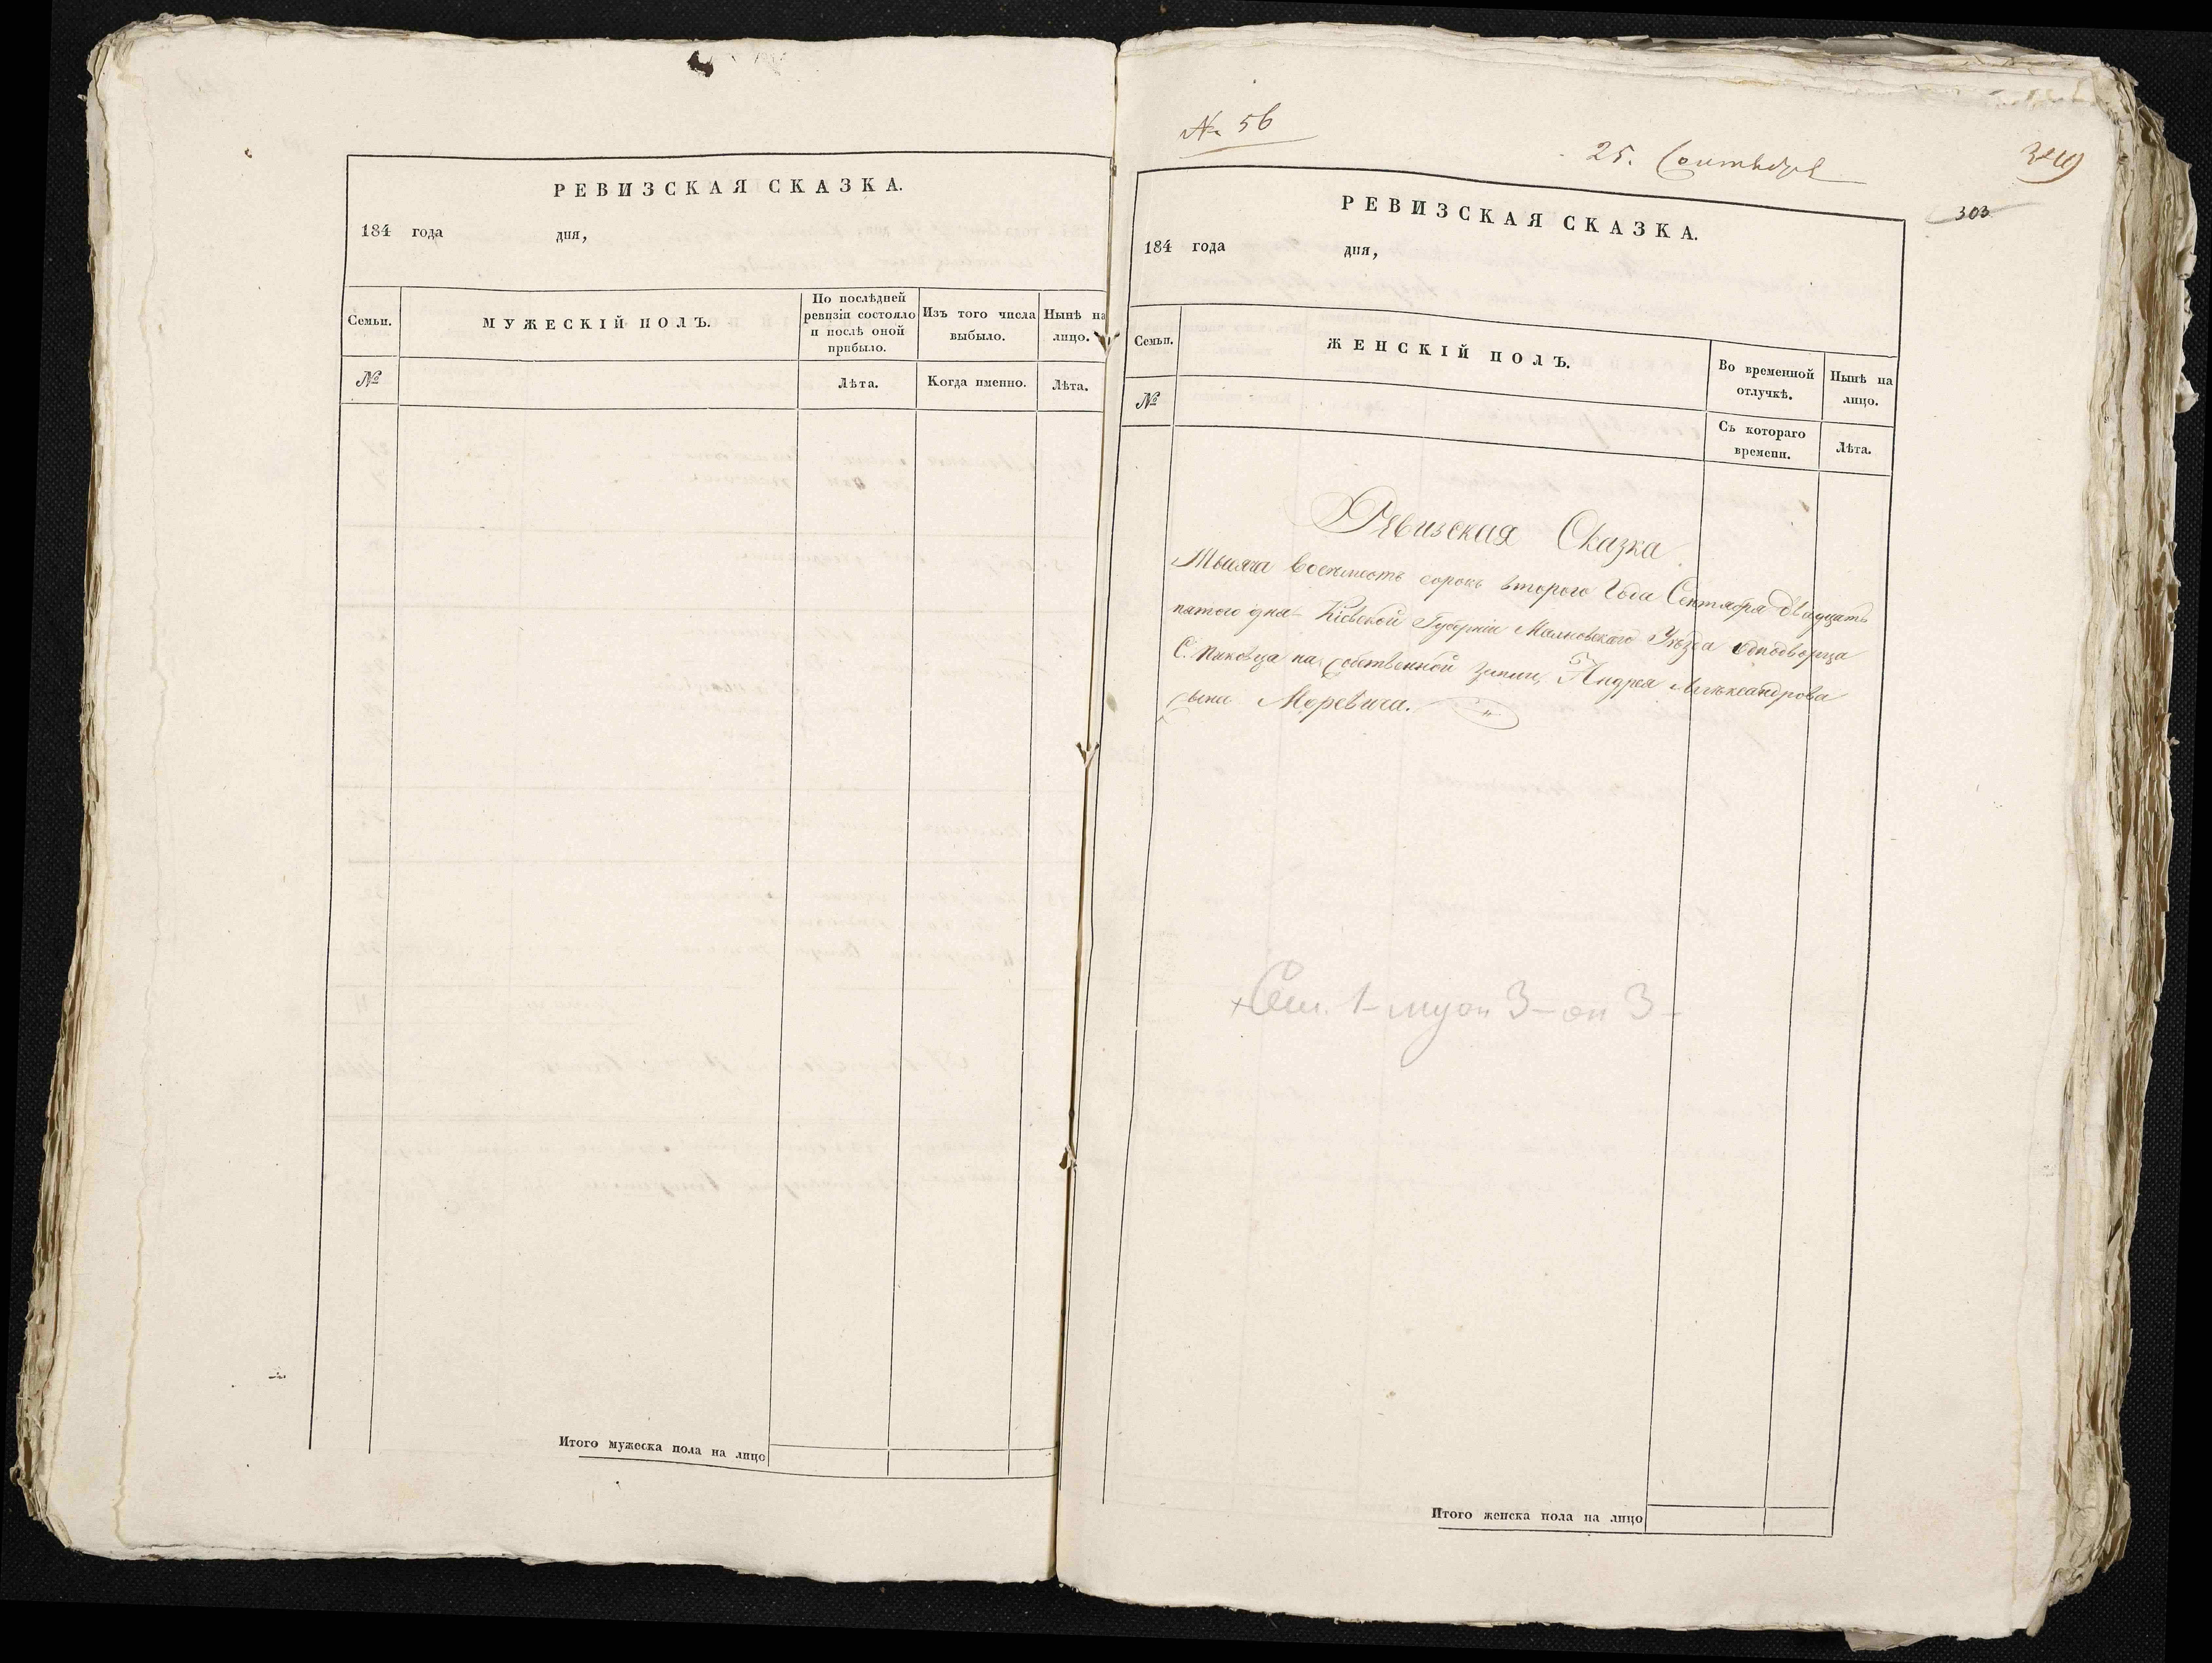 РЕВИЗСКАЯ СКАЗКА.
184 года дня,
Семьи.
МУЖЕСКІЙ ПОЛЪ.
По послѣдней
ревизіи состояло
и послѣ оной
прибыло.
Изъ того числа
выбыло.
Нынѣ на
лицо.
№
Лѣта.
Когда именно.
Лѣта.
Итого мужеска пола на лицо
№ 56
25. Сентября
303
РЕВИЗСКАЯ СКАЗКА.
184 года дня,
Семьи.
ЖЕНСКІЙ ПОЛЪ.
Во временной
отлучкѣ.
Нынѣ на
лицо.
№
Съ котораго
времени.
Лѣта.
Ревизская Сказка
Тысяча восемьсотъ сорокъ втораго Года Сентября двадцать
пятого дня Кіевской Губерніи Уѣзда однодворца
С. Пиковца на собственной земли, Андрея Александрова
сына Моревича.
3 3
Итого женска пола на лицо